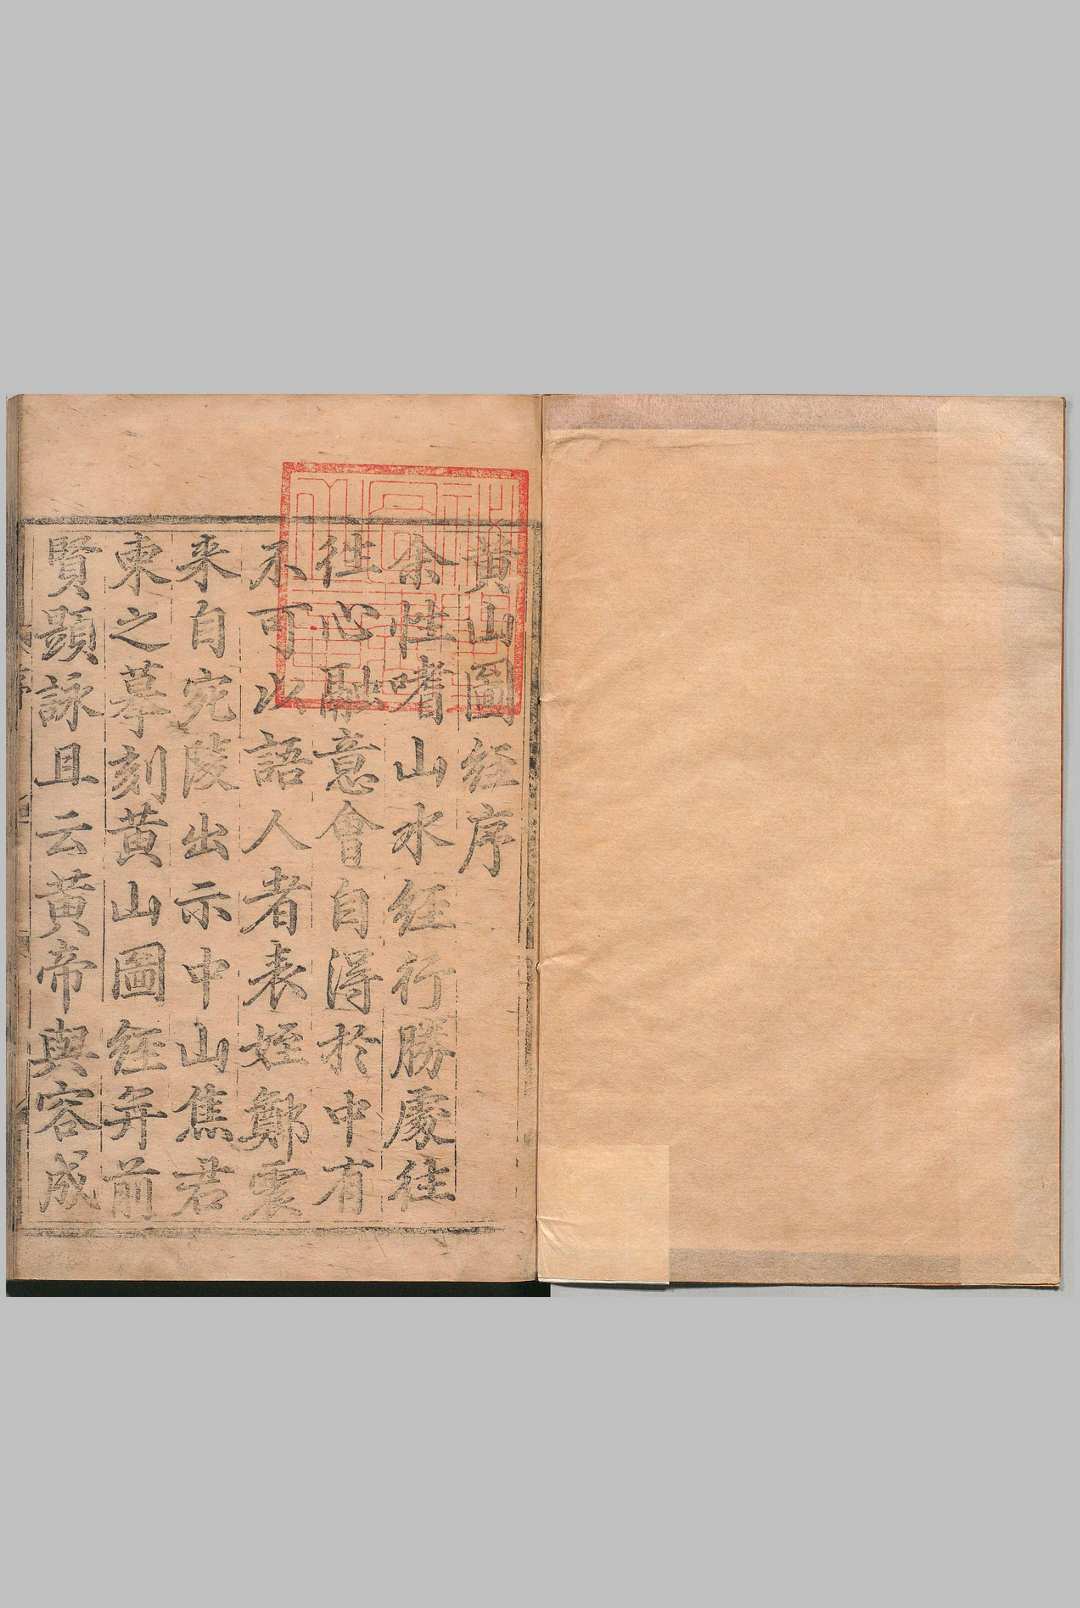 黄山圖經序
余性嗜山水經行勝處往
往心融意會自得於中有
不可以語人者表姪鄭震
来自宛陵出示中山焦君
東之摹刻黄山圖經并前
賢題詠且云黄帝與容成